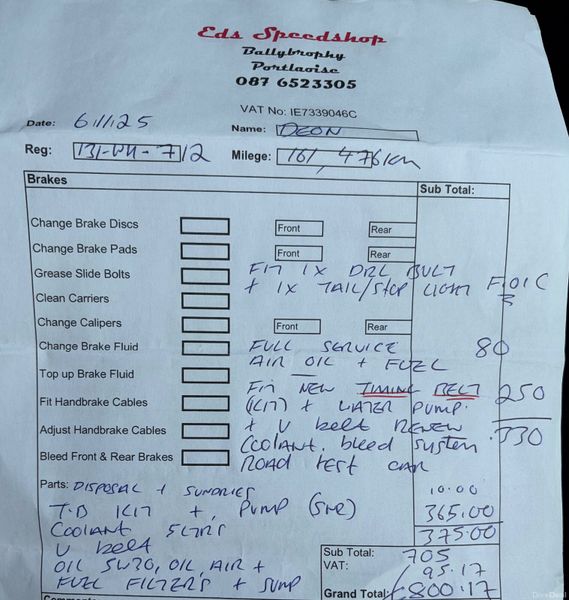 Eds Speedshop
Ballybrophy
Portlaoise
087 6523305
VAT No: IE7339046C
Date: 6/1/25 Name: DEON
Reg: 131-WH-712 Milege: 161,476km
Brakes Sub Total:
Change Brake Discs Front Rear
Change Brake Pads Front Rear
Grease Slide Bolts FIT 1X DRL BULT
+ 1X TAIL/STOP LIGHT F.O.C
Clean Carriers
Change Calipers Front Rear
Change Brake Fluid FULL SERVICE 80
AIR OIL + FUEL
Top up Brake Fluid
FIT NEW TIMING BELT 250
Fit Handbrake Cables (KIT) + WATER PUMP.
+ V belt RENEW 330
Adjust Handbrake Cables
Coolant. bleed system
Bleed Front & Rear Brakes ROAD test CAR
Parts: DISPOSAL + SUNDRIES 10.00
T.B KIT +, PUMP (SNR) 365.00
COOLANT 5LTRS 375.00
V belt
Sub Total: 705
OIL 5W30, OIL, AIR + VAT: 95.17
FUEL FILTERS + SUMP Grand Total € 800.17
DoneDeal